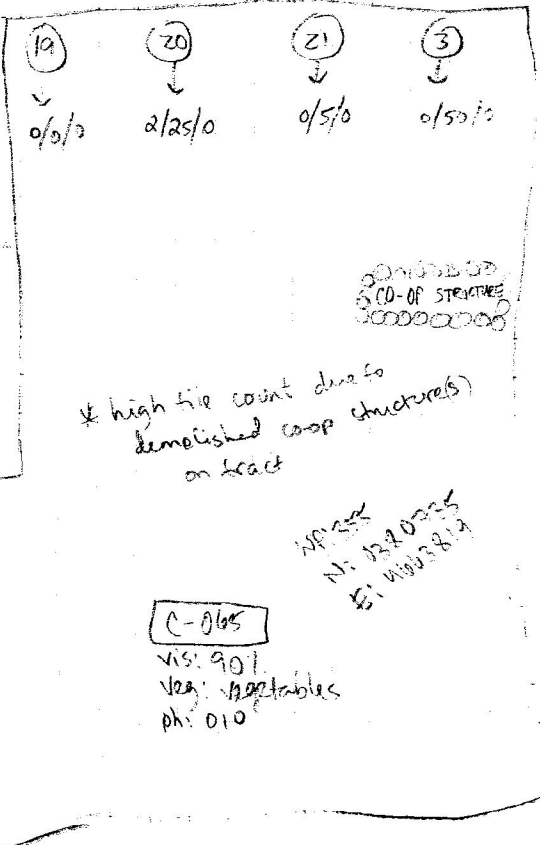 19 20 21 3
0/0/0 2/25/0 0/5/0 0/50/0
CO-OP STRUCTURE
* high tile count due to
demolished co-op structure(s)
on tract
WP: 355
N: 0380735
E:
C-065
vis: 90%
veg: vegetables
ph: 010